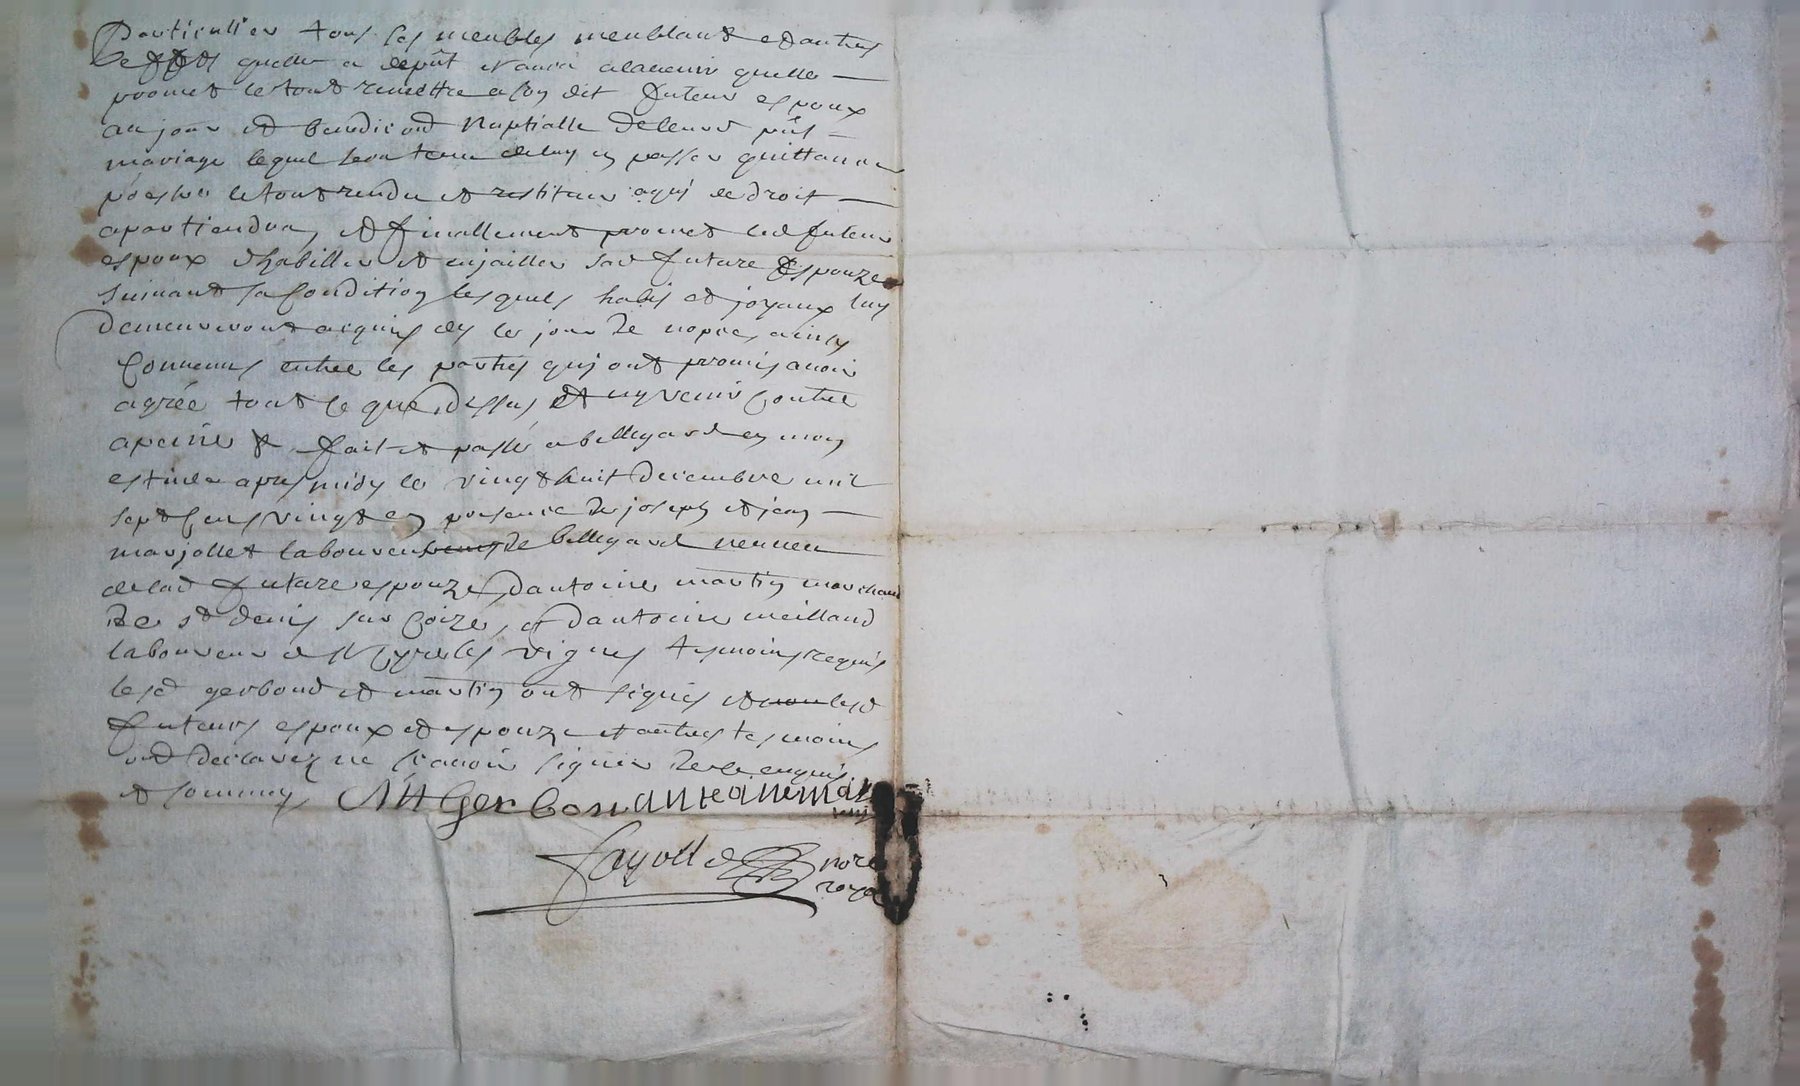 Particulier tous ses meubles meublant et autres
effets quelle a depñt et aura aladvenir quelle
promet le tout remettre a son dit futeur espoux
au jour et benedicõn Nuptialle de leurd pñt
mariage lequel sera tenu de luy en passer quittance
pr estre le tout rendu et restitue a qui de droit
apartiendra, et finallement promet led futeur
espoux dhabiller et enjailler sad future Espouze
suivant sa Condition lesquels habis et joyaux luy
demeureront acquis des le jour de nopce, ainsy
Convenus entre les parties qui ont promis avoir
agrée tout ce que dessus et ny venir Contre
a peine & fait et passé a bellegarde en mon
estude apres midy le vingt huit decembre mil
sept Cens vingt en presence de joseph et jean
marjollet laboureurs de bellegarde neveu
de lad future espouze, dantoine martin marchand
de st denis sur Coize, et dantoine meilland
laboureur de st Cyre les vignes tesmoins requis
lesd gerbout et martin ont signés et lesd
futeurs espoux et espouze et autres tesmoins
ont declarez ne scavoir signer de ce enquis
et sommez Gerbon anteane mar
tein
fayolle nore
royal